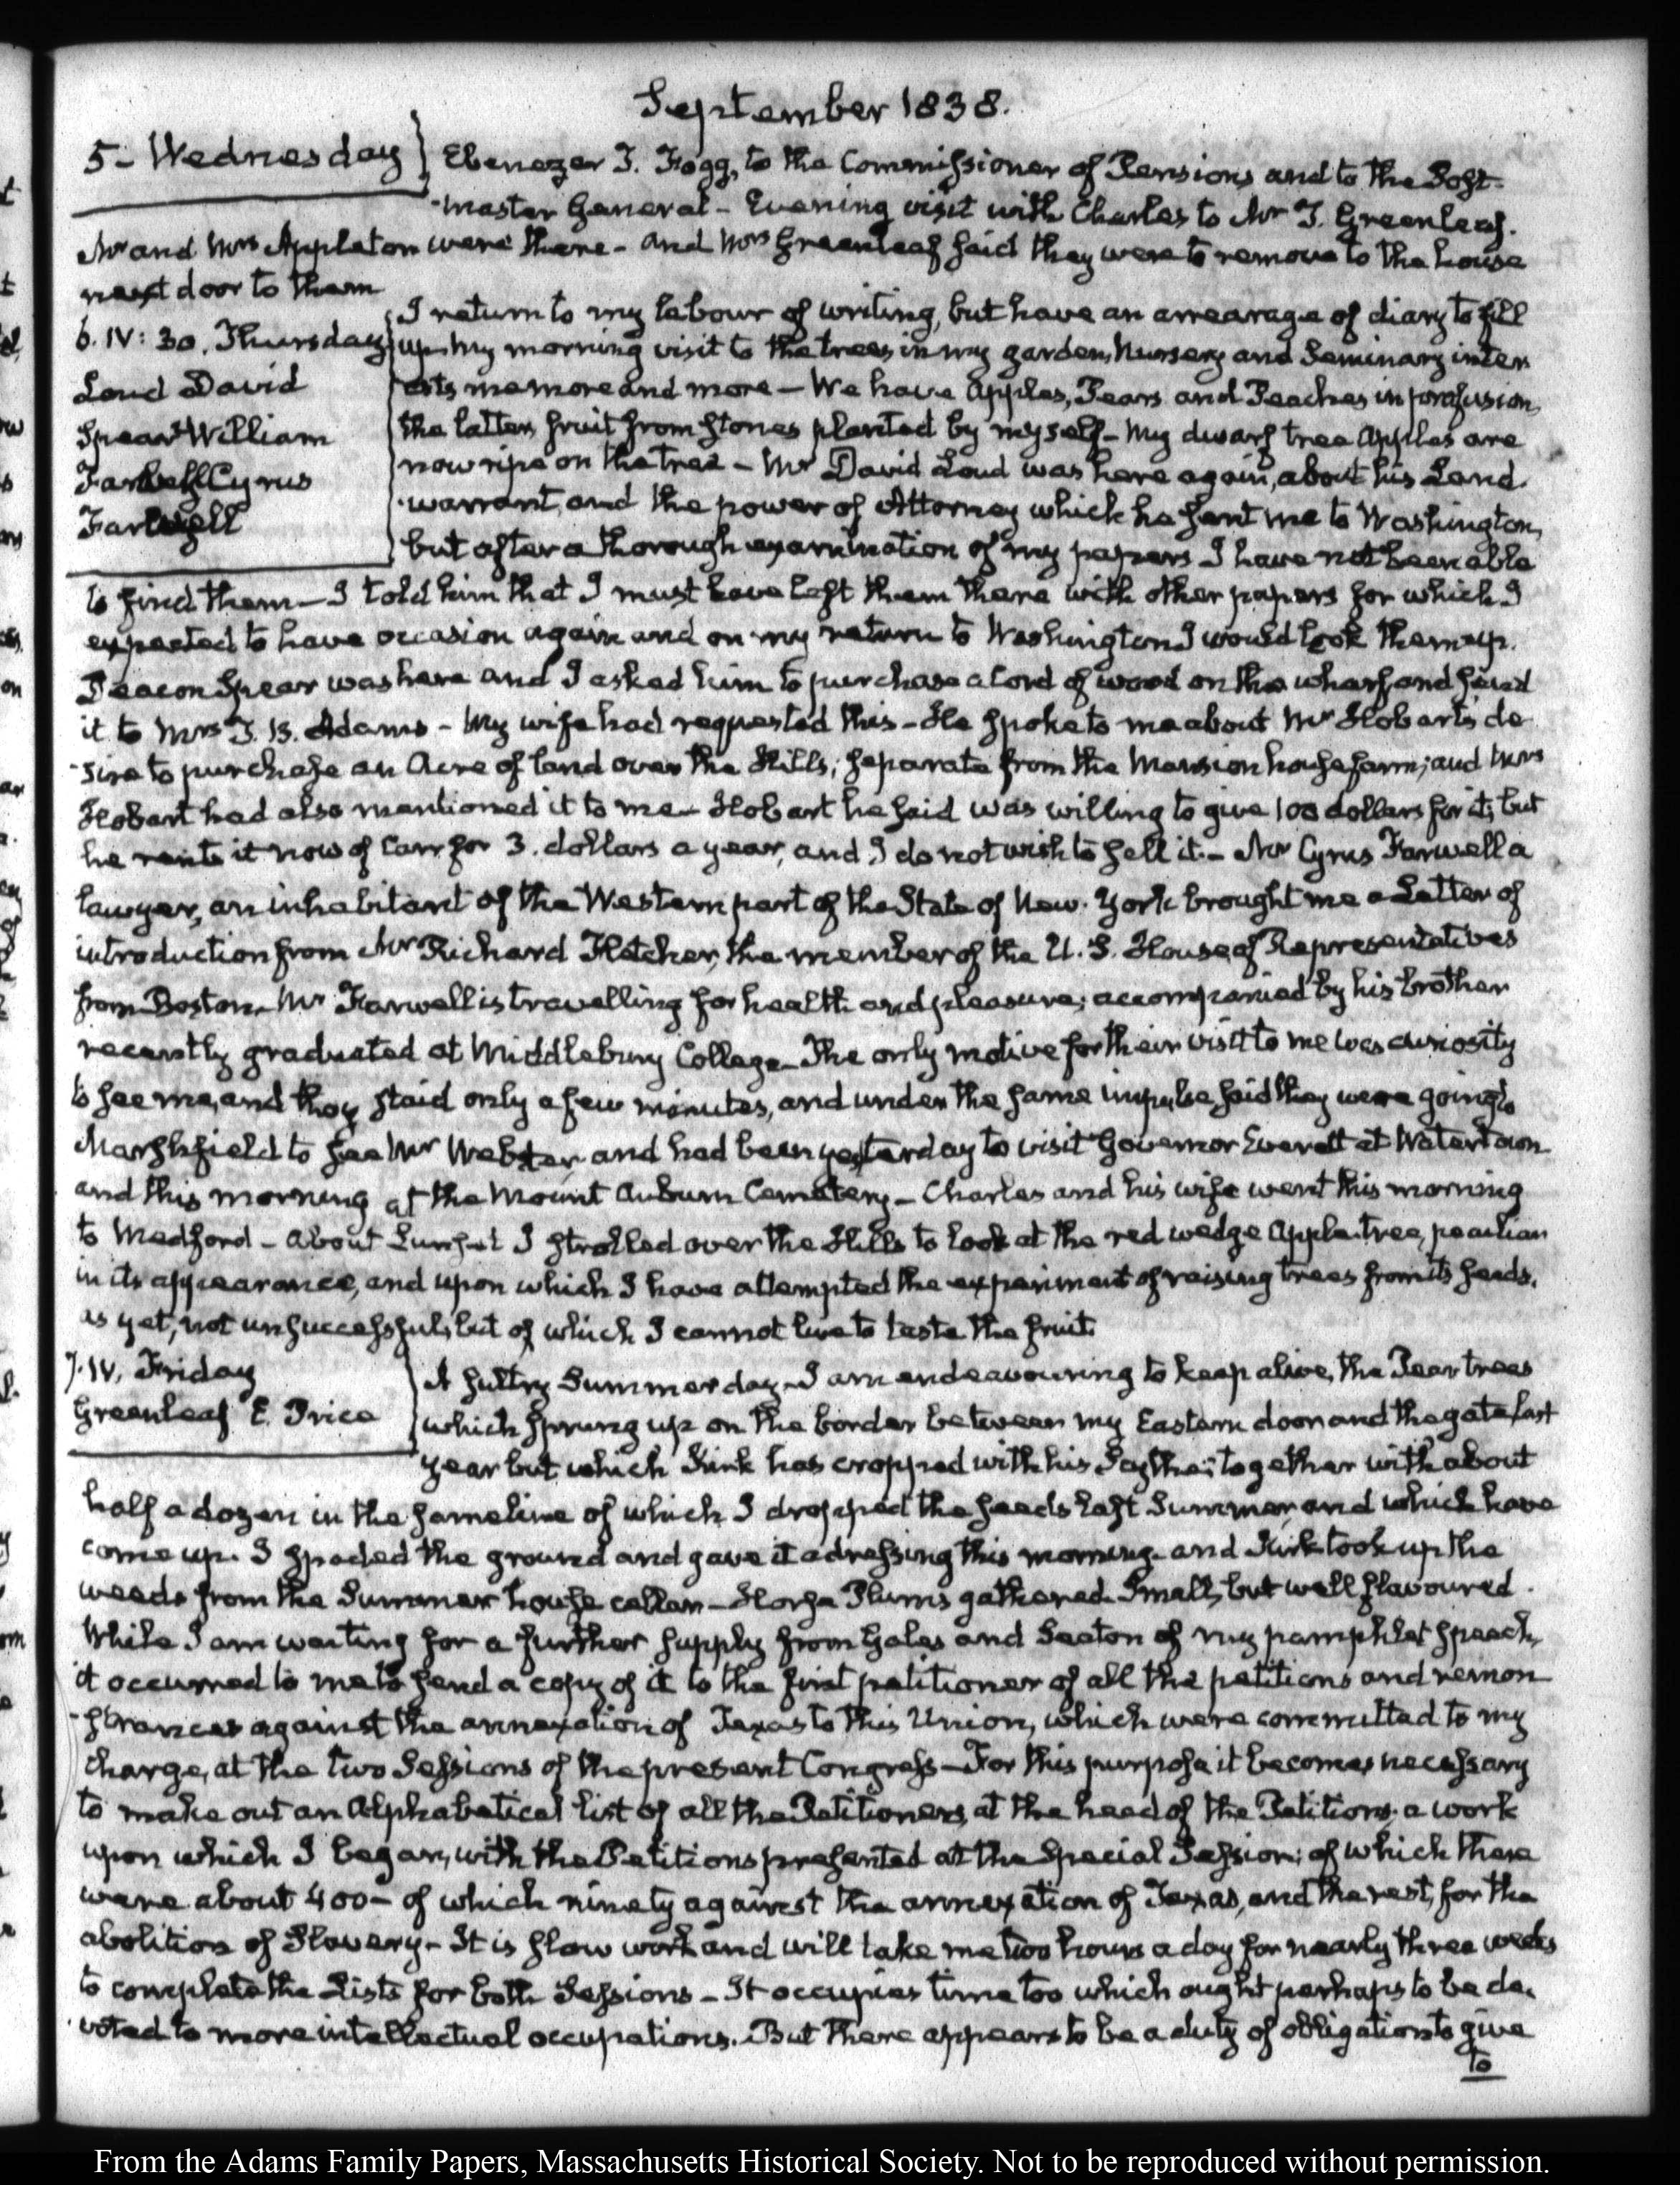 September 1838.
5- Wednesday
Ebenezer T. Fogg, to the Commissioner of Pensions and to the Post-
-master General - Evening visit with Charles to Mr T. Greenleaf.
Mr and Mrs Appleton were there - and Mrs Greenleaf said they were to remove to the house
next door to them
6. IV: 30. Thursday
Loud David
Spear William
Farwell Cyrus
Farwell
I return to my labour of writing, but have an arrearage of diary to fill
up. My morning visit to the trees in my garden, Nursery and Seminary inter
ests me more and more - We have Apples, Pears and Peaches in profusion,
the latter fruit from stones planted by myself - My dwarf tree Apples are
now ripe on the tree - Mr David Loud was here again, about his Land.
-warrant, and the power of Attorney which he sent me to Washington,
but after a thorough examination of my papers I have not been able
to find them - I told him that I must have left them there with other papers for which I
expected to have occasion again and on my return to Washington I would look them up.
Deacon Spear was here and I asked him to purchase a Cord of wood on the wharf, and send
it to Mrs T. B. Adams - My wife had requested this - He spoke to me about Mr Hobart's de
-sire to purchase an Acre of land over the Hills; separate from the Mansion house farm; and Mrs
Hobart had also mentioned it to me - Hobart he said was willing to give 100 dollars for it; but
he rents it now of Carr for 3. dollars a year, and I do not wish to sell it. - Mr Cyrus Farwell a
lawyer, an inhabitant of the Western part of the State of New-York brought me a Letter of
introduction from Mr Richard Fletcher, the member of the U. S. House of Representatives
from Boston. Mr Farwell is travelling for health and pleasure; accompanied by his brother
recently graduated at Middlebury College - The only motive for their visit to me was curiosity
to see me, and they staid only a few minutes, and under the same impulse said they were going to
Marshfield to see Mr Webster and had been yesterday to visit Governor Everett at Watertown
and this morning at the Mount Auburn Cemetery - Charles and his wife went this morning
to Medford - About Sunset I strolled over the Hills to look at the red wedge Apple-tree, peculiar
in its appearance, and upon which I have attempted the experiment of raising trees from its seeds.
as yet, not unsuccessful, but of which I cannot live to taste the fruit.
7. IV. Friday
Greenleaf E. Price
A sultry Summer day - I am endeavouring to keep alive, the Pear trees
which sprung up on the border between my Eastern door and the gate last
year but which Kirk has cropped with his Scythe; together with about
half a dozen in the same line of which I dropped the seeds last Summer, and which have
come up. I spaded the ground and gave it a dressing this morning. and Kirk took up the
weeds from the Summer house cellar - Horse Plums gathered. Small, but well flavoured.
While I am waiting for a further supply from Gales and Seaton of my pamphlet speech,
it occurred to me to send a copy of it to the first petitioner of all the petitions and remon
-strances against the annexation of Texas to this Union, which were committed to my
charge, at the two Sessions of the present Congress - For this purpose it becomes necessary
to make out an Alphabetical list of all the Petitioners, at the head of the Petitions; a work
upon which I began, with the Petitions presented at the Special Session; of which there
were about 400 - of which ninety against the annexation of Texas, and the rest, for the
abolition of Slavery - It is slow work and will take me two hours a day for nearly three weeks
to complete the Lists for both Sessions - It occupies time too which ought perhaps to be de-
voted to more intellectual occupations. But there appears to be a duty of obligation to give
to
From the Adams Family Papers, Massachusetts Historical Society. Not to be reproduced without permission.